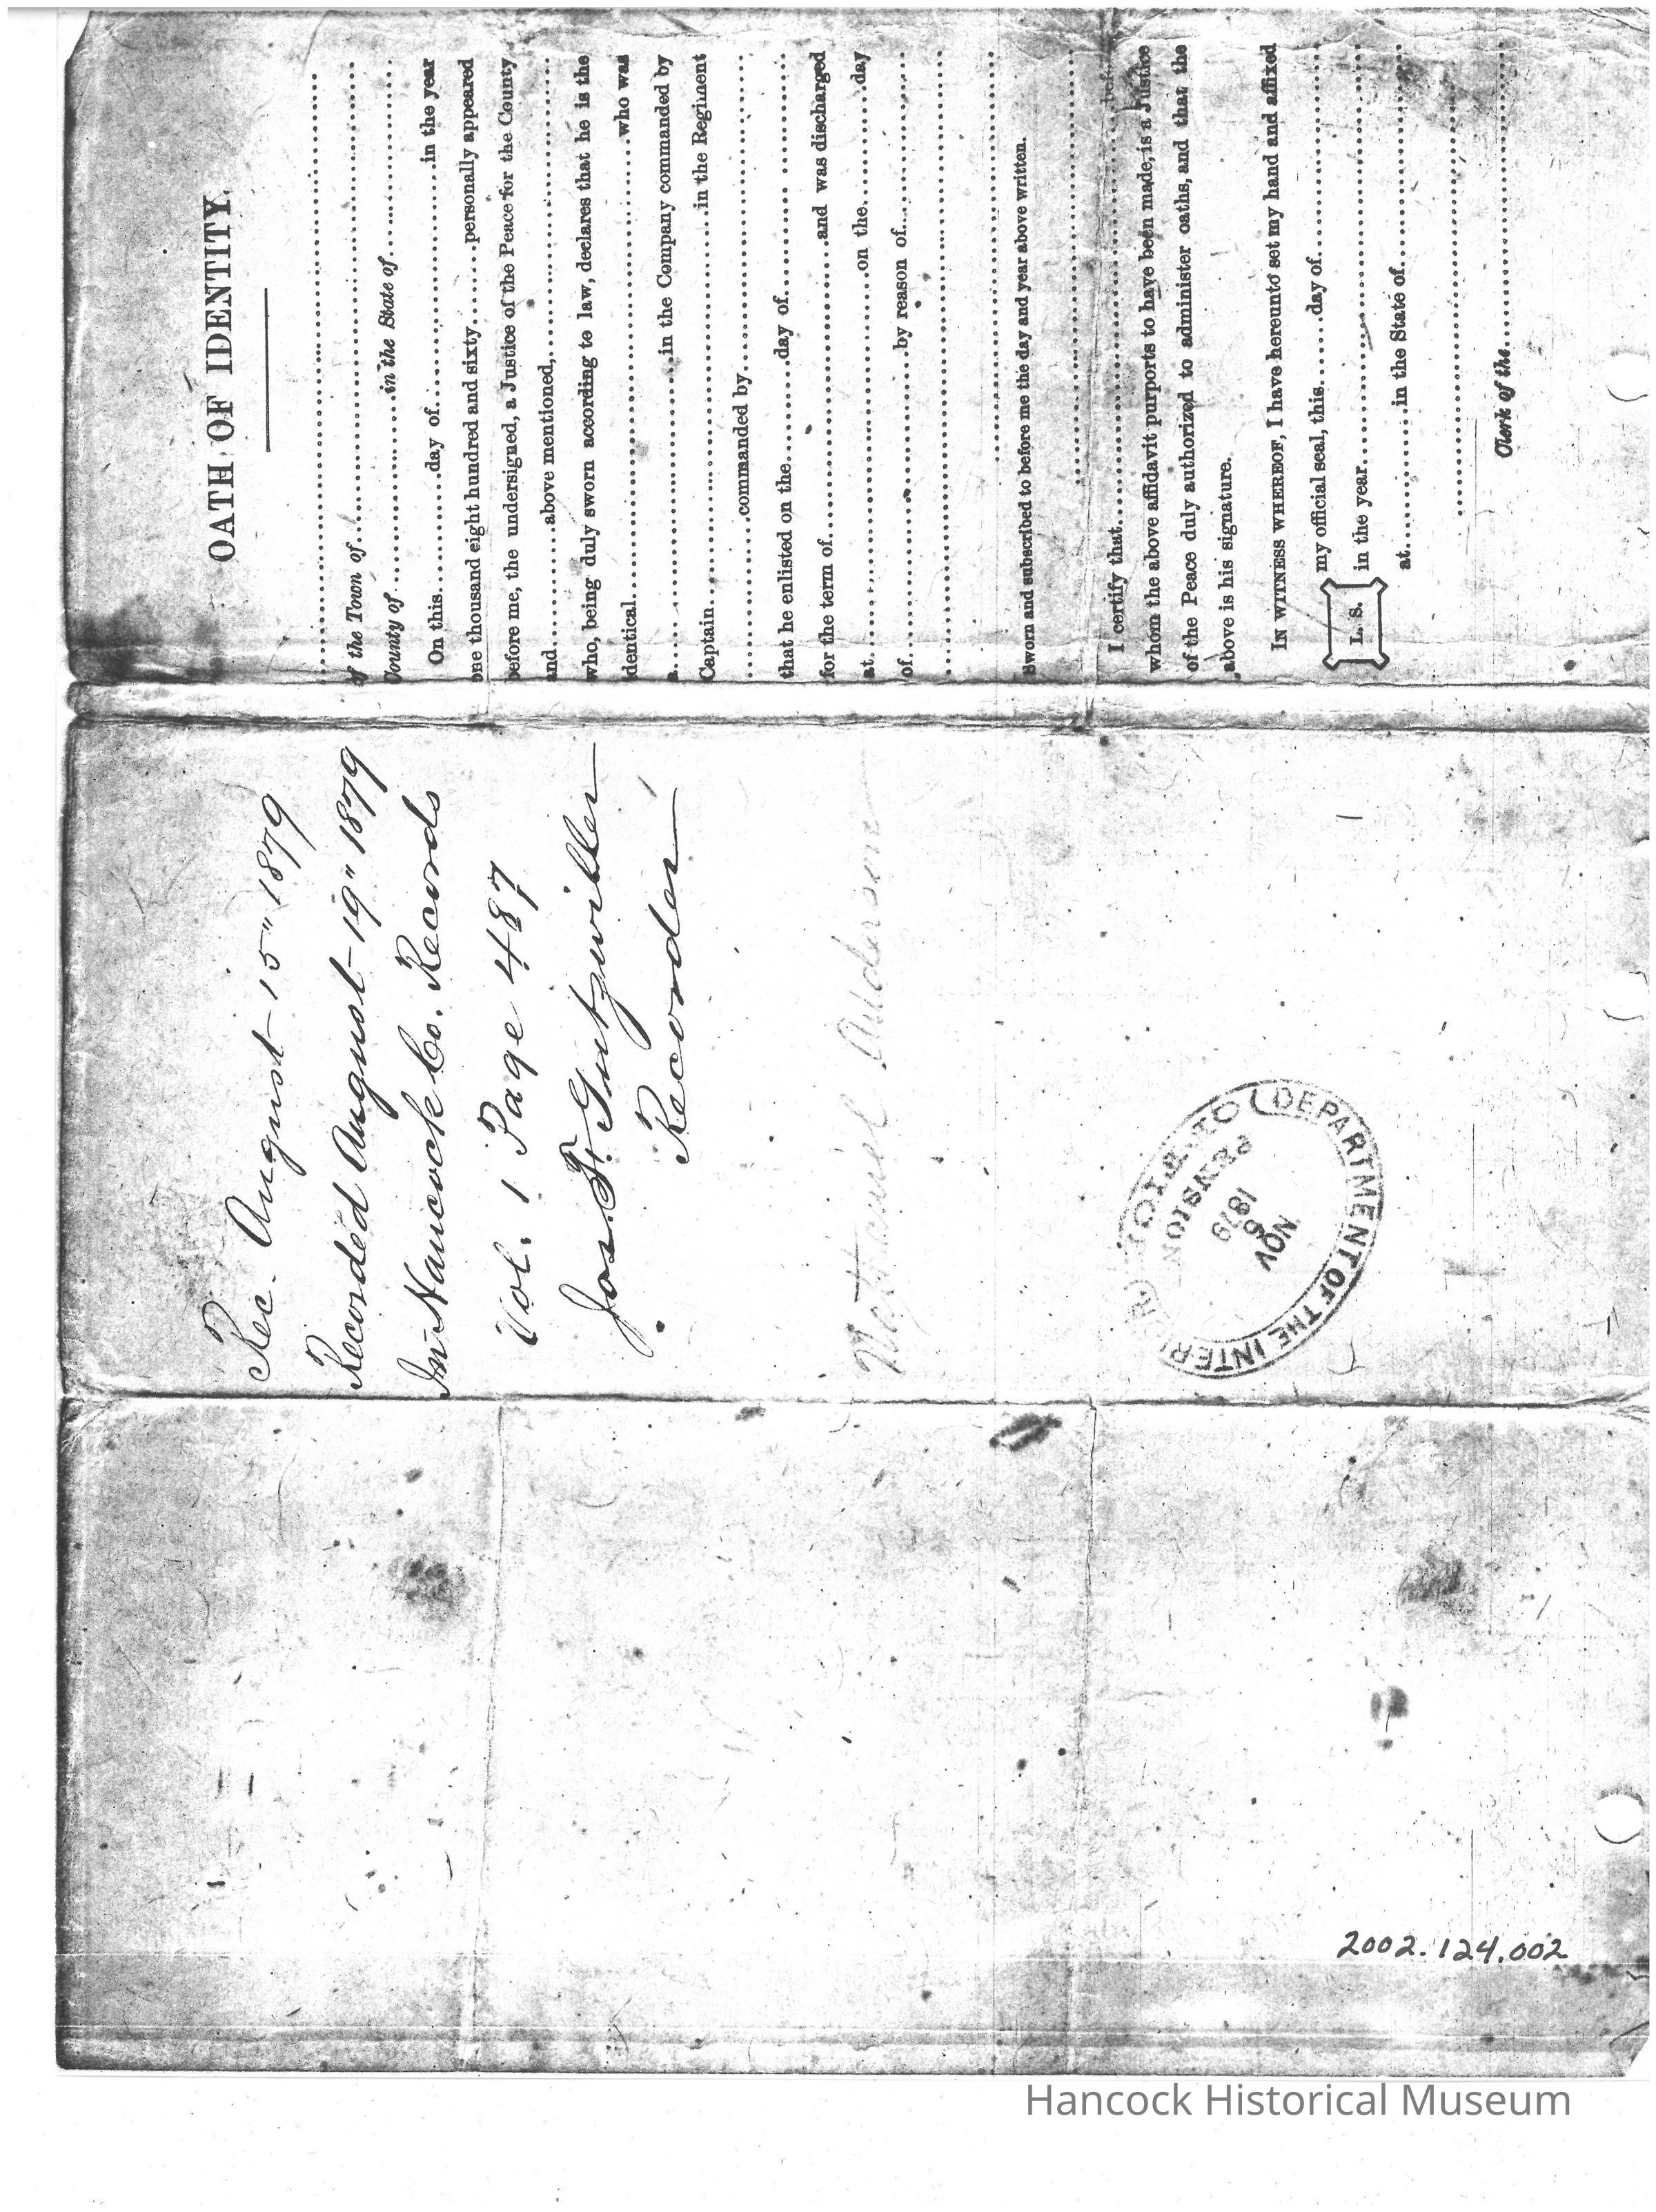 OATH OF IDENTITY.
of the Town of
County of in the State of
On this day of in the year
one thousand eight hundred and sixty personally appeared
before me, the undersigned, a Justice of the Peace for the County
and above mentioned,
who, being duly sworn according to law, declares that he is the
identical who was
a in the Company commanded by
Captain in the Regiment
commanded by
that he enlisted on the day of
for the term of and was discharged
at on the day
of by reason of
Sworn and subscribed to before me the day and year above written.
I certify that before
whom the above affidavit purports to have been made, is a Justice
of the Peace duly authorized to administer oaths, and that the
above is his signature.
IN WITNESS WHEREOF, I have hereunto set my hand and affixed
my official seal, this day of
L. S. in the year
at in the State of
Clerk of the
Rec. August 15" 1879
Recorded August 19" 1879
In Hancock Co. Records
Vol. 1 Page 487
Jos. F. Gutzwiller
Recorder
Nathaniel Anderson
DEPARTMENT OF THE INTERIOR
PENSION
NOV
6
1879
2002.124.002
Hancock Historical Museum